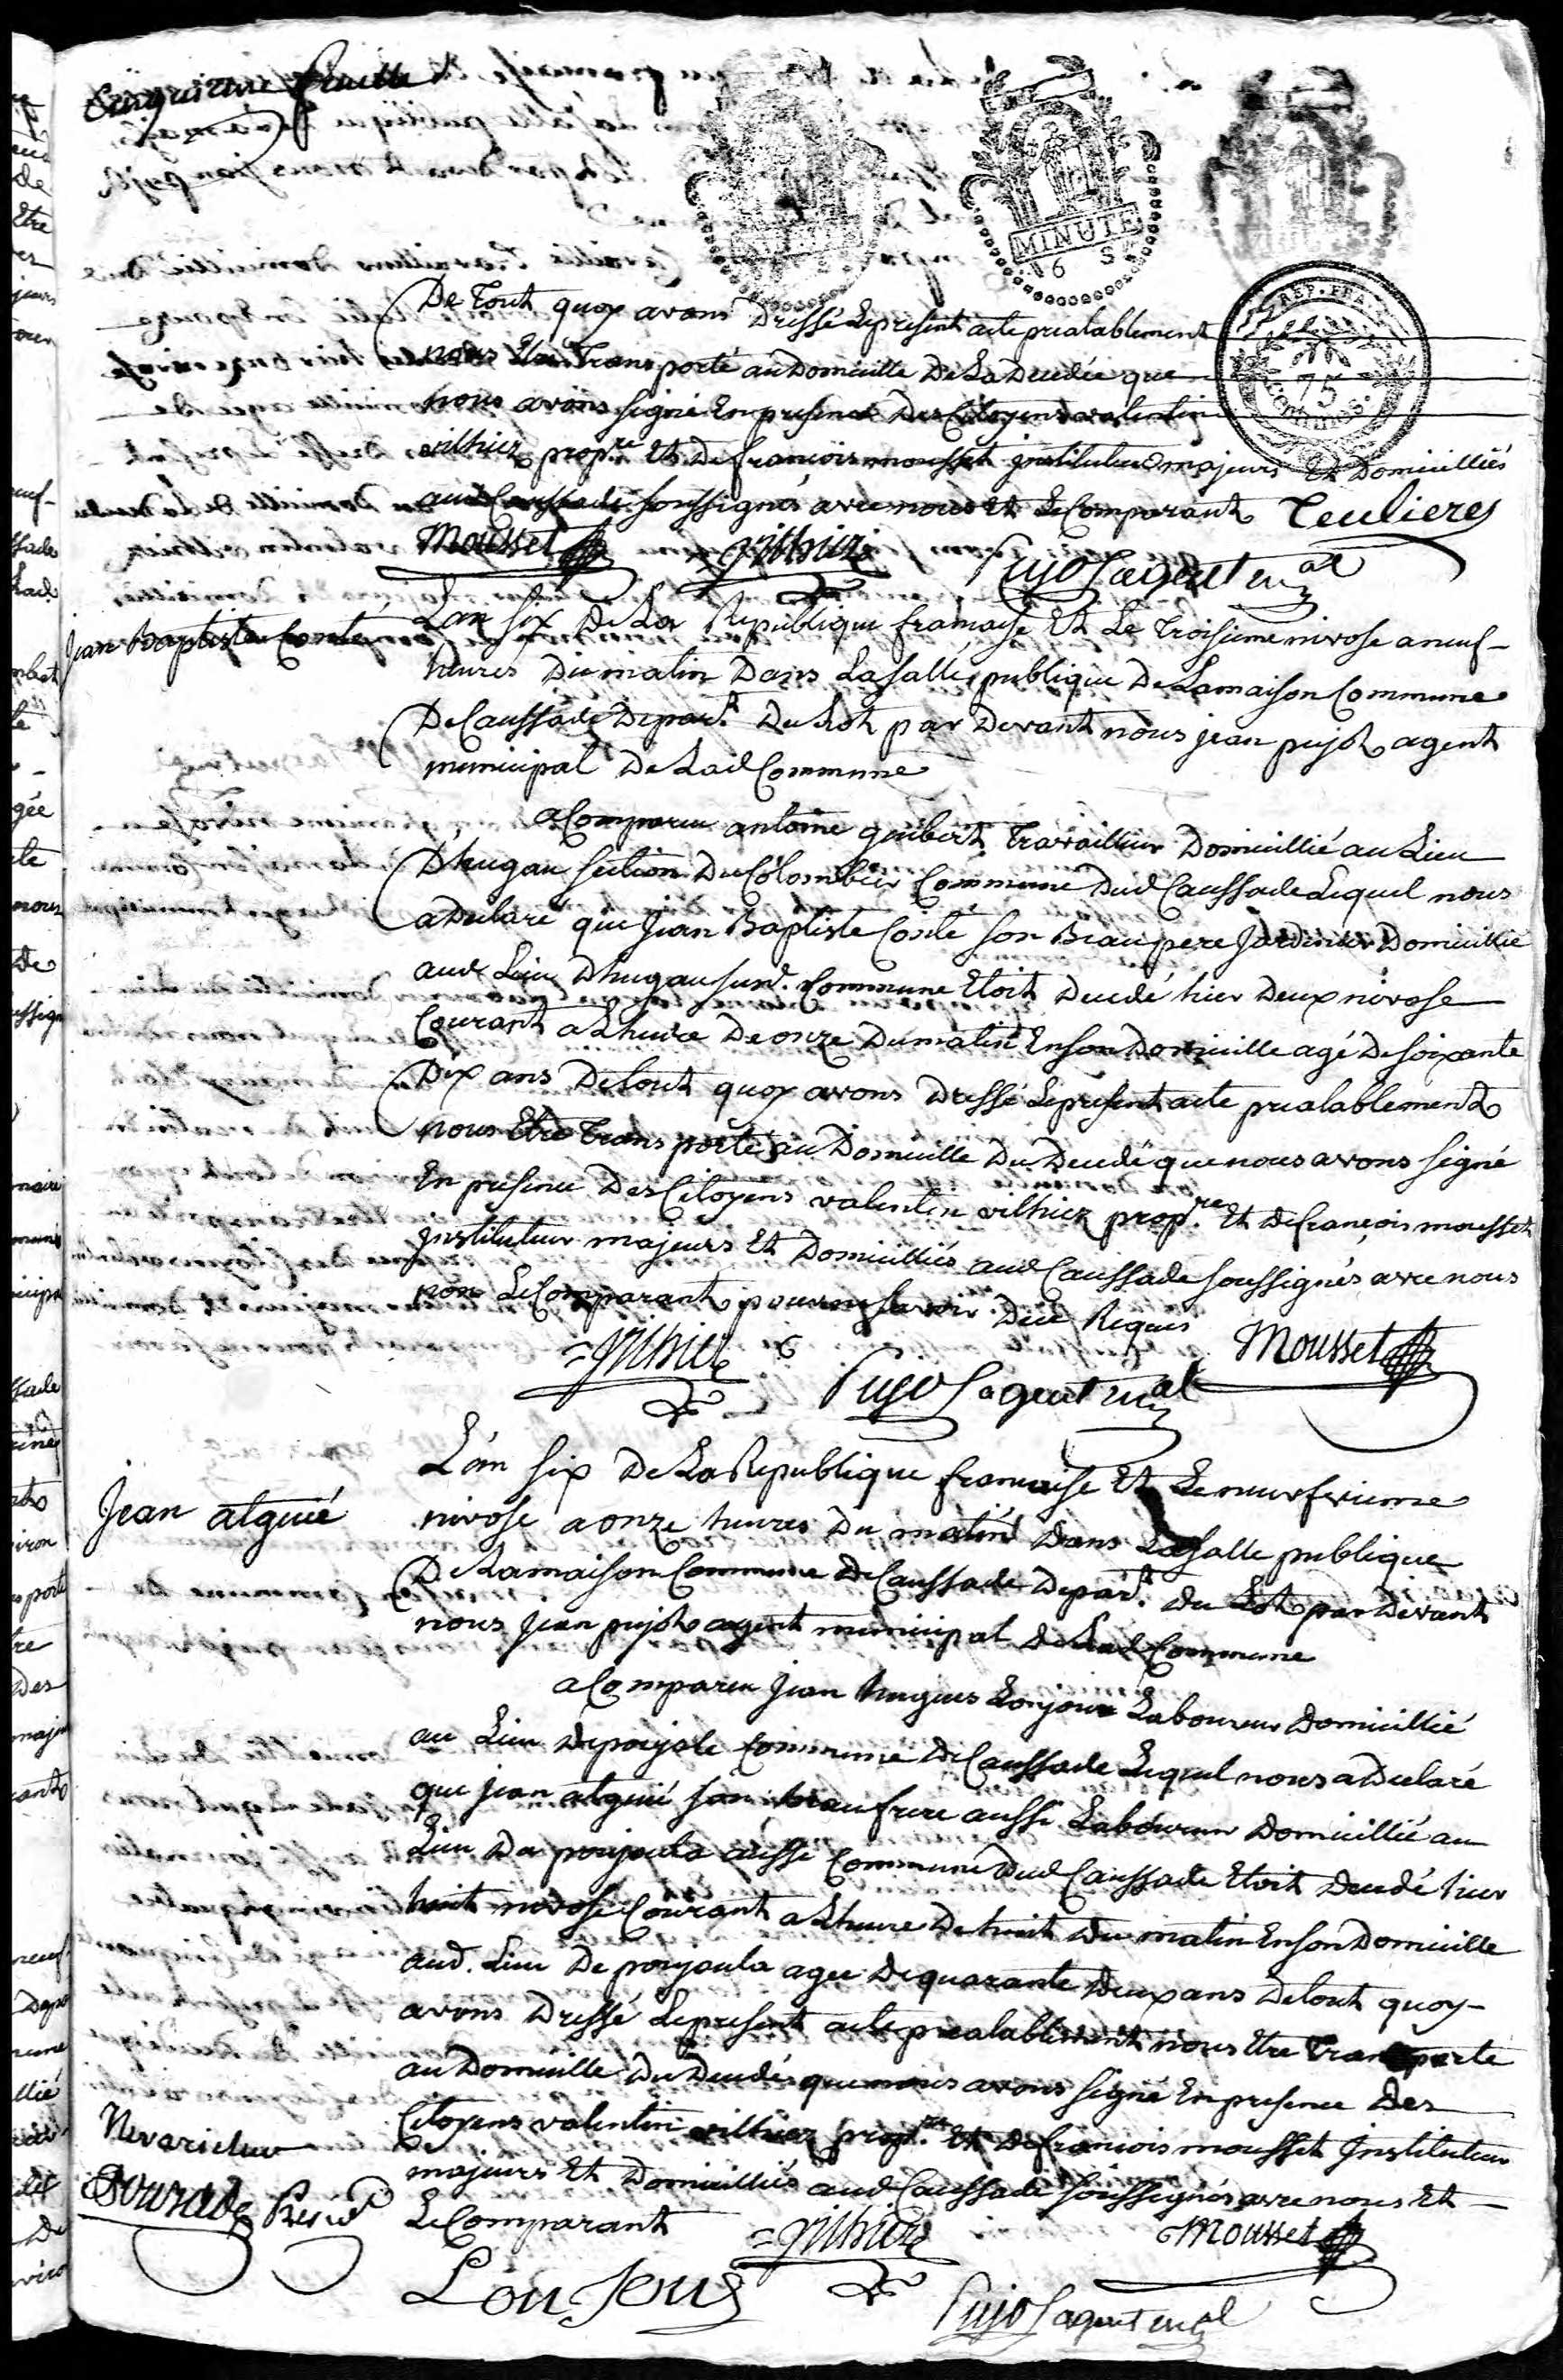 Cinquieme feuille
MINUTE
6 S
REP. FRA.
75
centimes.
De Tout quoy avons Dressé Lepresent acte prealablement
nous Etre Transporté au Domicille De La Decedée que
nous avons signé En presence Des Citoyens valentin
vilhiez prop.re Et De francois mousset jnstituteur majeurs Et Domicilliés
aud Caussade soussignés avec nous Et Le Comparant Teulieres
Mousset vilhiez
Pujol agent mal
Jean Baptiste Conté
Lan six De La Republique francaise Et Le Troisieme nivose a neuf
heures Du matin Dans La salle publique De Lamaison Commune
De Caussade Depart. Du Lot par Devant nous jean pujol agent
municipal De Lad Commune
a Comparu antoine guibert Travailleur Domicillié au Lieu
Dhugau section Du Colombier Commune Dud Caussade Lequel nous
a Declaré que jean Baptiste Conte son Beaupere Jardinier Domicillié
aud Lieu Dhugau susd. Commune Etoit Decedé hier Deux nivose
Courant a Lheure De onze Dumatin En son Domicille agé De soixante
Dix ans De tout quoy avons Dressé Le present acte prealablement
nous Etre Transporté au Domicille Du Decedé que nous avons signé
En presence Des Citoyens valentin vilhiez prop.re Et De francois mousset
Jnstituteur majeurs Et Domicilliés aud Caussade soussignés avec nous
non Le Comparant pour ne savoir De ce Requis
vilhiez Mousset
Pujol agent mal
Jean alquié
L'an six De La Republique francaise Et Le neuf vieme
nivose a onze heures Du matin Dans La salle publique
De Lamaison Commune De Caussade Depart. Du Lot par Devant
nous Jean pujol agent municipal De Lad Commune
a Comparu Jean hugues Lonjour Laboureur Domicillié
au Lieu De poujole Commune De Caussade Lequel nous a Declaré
que jean alquié son beaufrere aussi Laboureur Domicillié au
Lieu De poujoula aussi Commune Dud Caussade Etoit Decedé hier
huit nivose Courant a Lheure De huit Du matin En son Domicille
aud. Lieu De poujoula agee De quarante Deux ans De tout quoy
avons Dressé Le present acte prealablement nous Etre Transporté
au Domicille Du Decedé que nous avons signé En presence Des
Citoyens valentin vilhiez prop.re Et De francois mousset Jnstituteur
majeurs Et Domicilliés aud Caussade soussignés avec nous Et
Le Comparant vilhiez Mousset
Lonjour
Pujol agent mal
Nevarietur